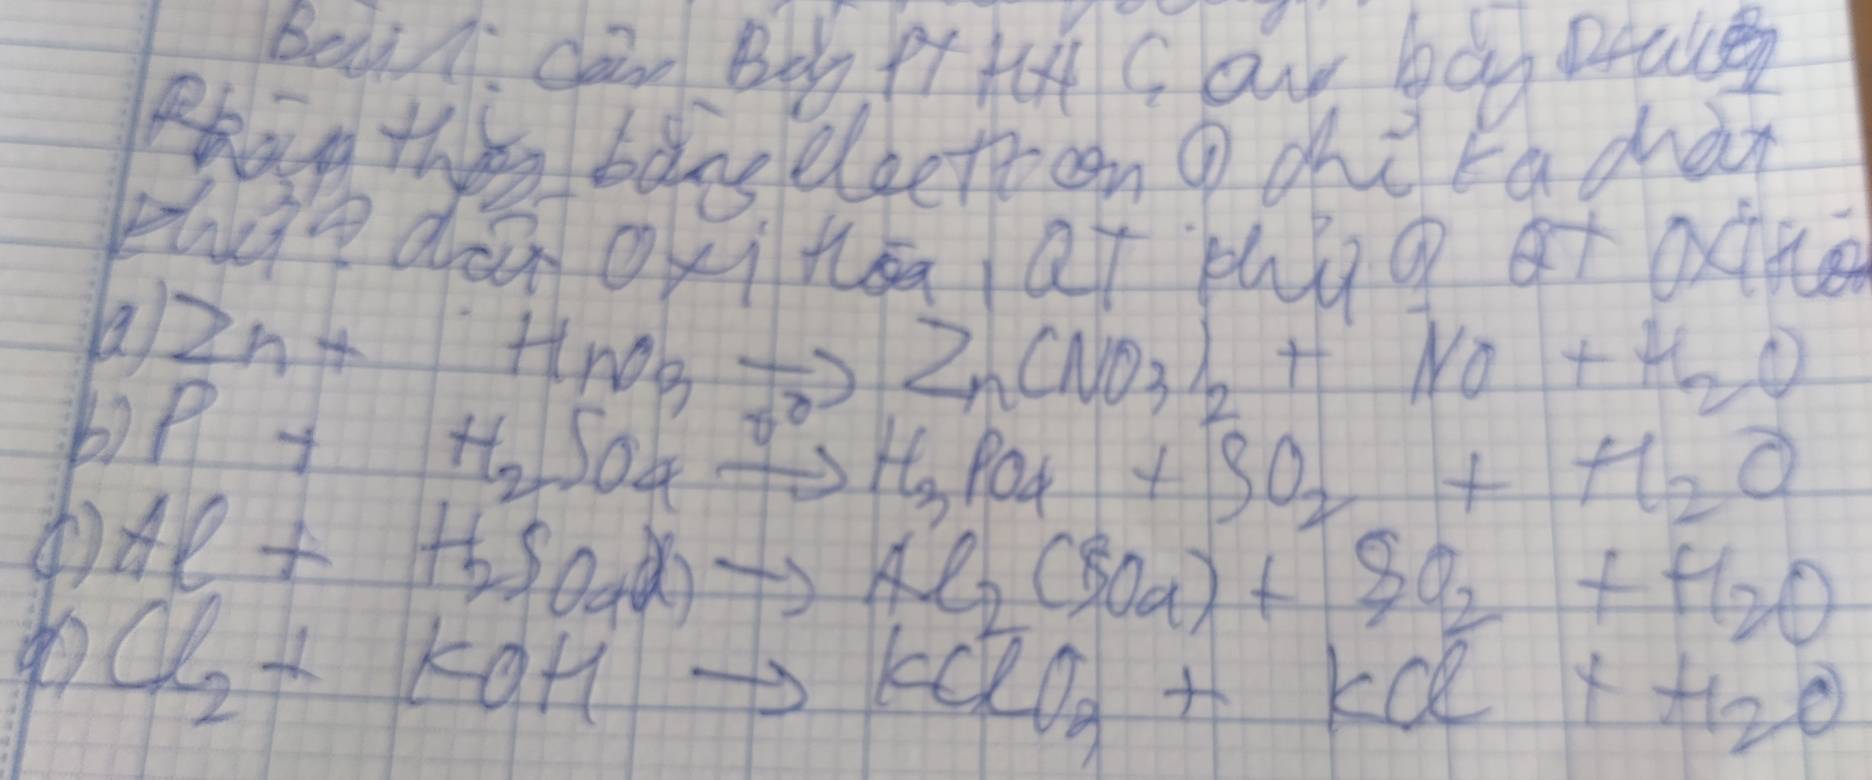 Bài 1: Cân Bằng PTHH Sau bằng
Phương thăng bằng electron chỉ ra chất
khử, chất oxi hóa, QT khử QT oxi hóa
a) Zn + HnO3 → Zn(NO3)2 + NO + H2O
b) P + H2SO4 t° → H3PO4 + SO2 + H2O
c) Al + H2SO4(đ) → Al2(SO4) + SO2 + H2O
d) Cl2 + KOH → KClO3 + KCl + H2O